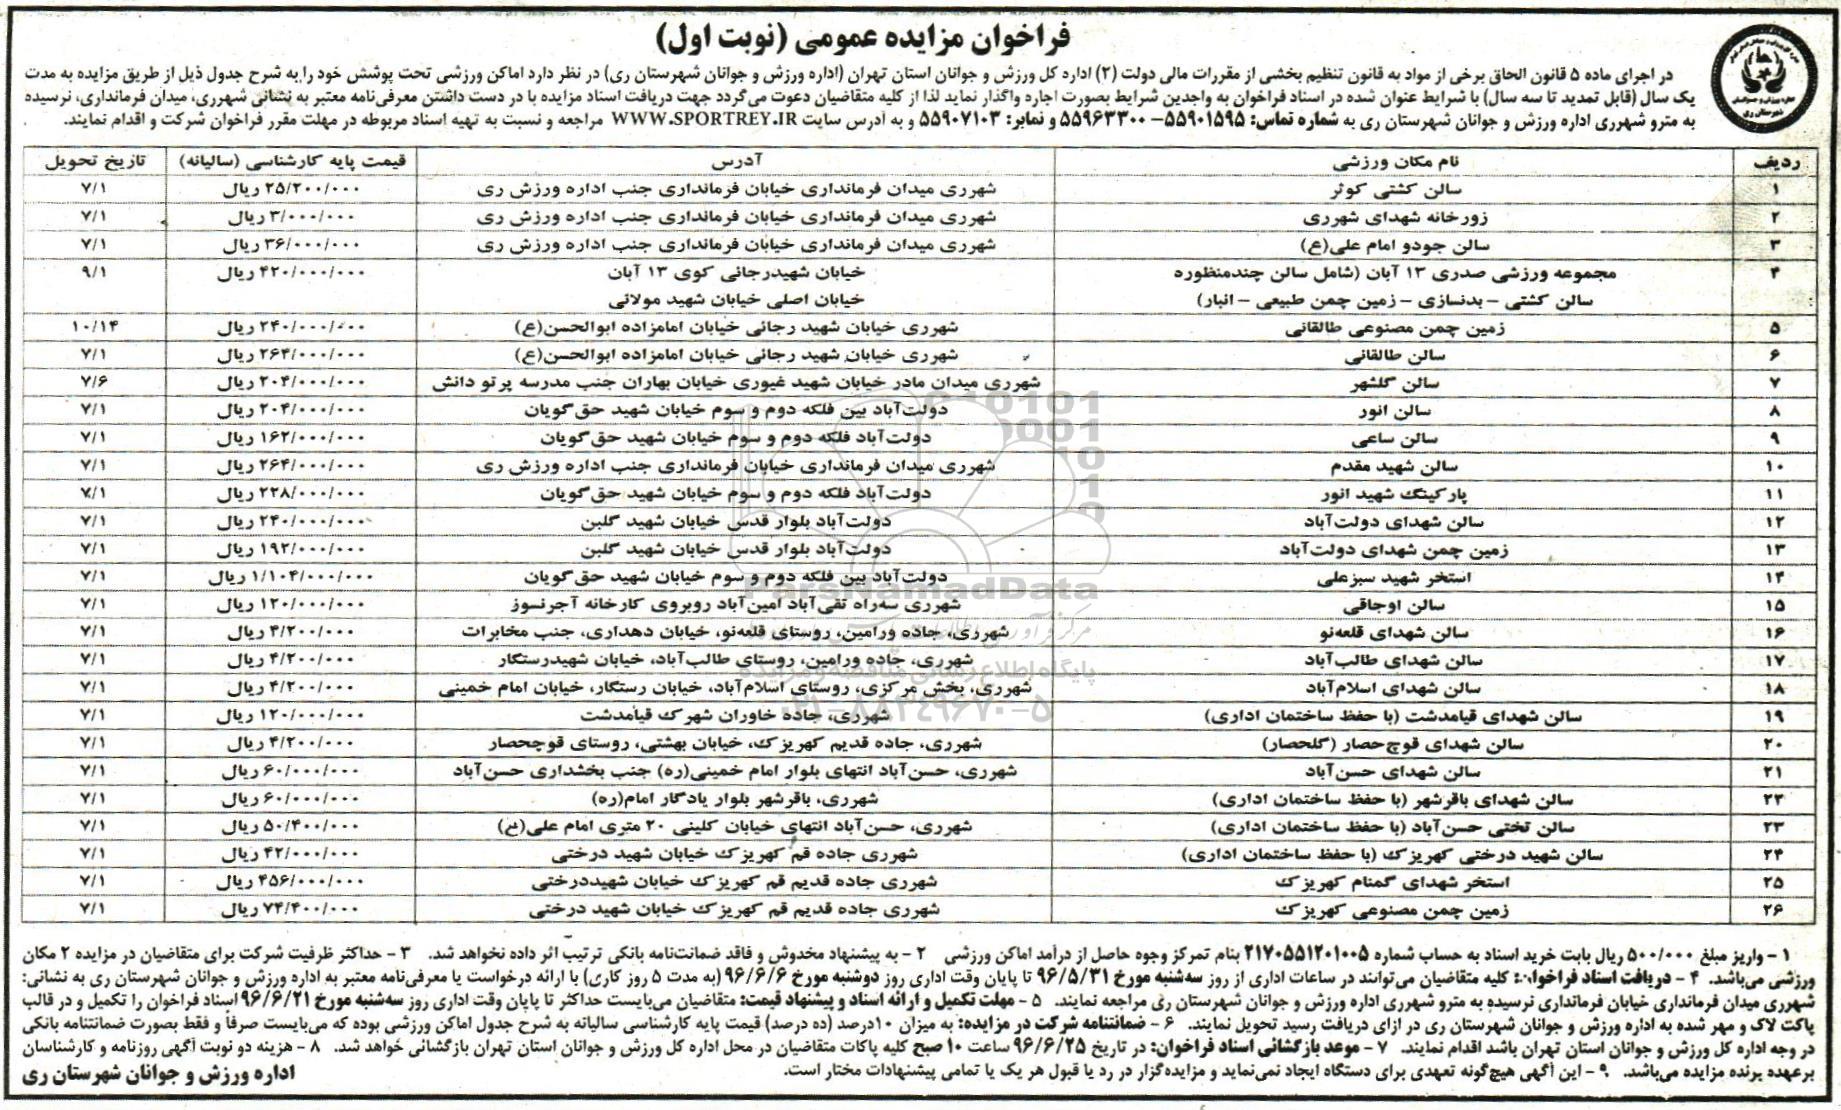 فراخوان مزایده عمومی (نوبت اول)
در اجرای ماده ۵ قانون الحاق برخی از مواد به قانون تنظیم بخشی از مقررات مالی دولت (۲) اداره کل ورزش و جوانان استان تهران (اداره ورزش و جوانان شهرستان ری) در نظر دارد اماکن ورزشی تحت پوشش خود را به شرح جدول ذیل از طریق مزایده به مدت
یک سال (قابل تمدید تا سه سال) با شرایط عنوان شده در اسناد فراخوان به واجدین شرایط بصورت اجاره واگذار نماید لذا از کلیه متقاضیان دعوت می‌گردد جهت دریافت اسناد مزایده با در دست داشتن معرفی‌نامه معتبر به نشانی شهرری، میدان فرمانداری، نرسیده
به مترو شهرری اداره ورزش و جوانان شهرستان ری به شماره تماس: ۵۵۹۰۱۵۹۵ - ۵۵۹۶۳۳۰۰ و نمابر: ۵۵۹۰۷۱۰۳ و به آدرس سایت WWW.SPORTREY.IR مراجعه و نسبت به تهیه اسناد مربوطه در مهلت مقرر فراخوان شرکت و اقدام نمایند.
ردیف نام مکان ورزشی آدرس قیمت پایه کارشناسی (سالیانه) تاریخ تحویل
۱ سالن کشتی کوثر شهرری میدان فرمانداری خیابان فرمانداری جنب اداره ورزش ری ۲۵/۲۰۰/۰۰۰ ریال ۷/۱
۲ زورخانه شهدای شهرری شهرری میدان فرمانداری خیابان فرمانداری جنب اداره ورزش ری ۳/۰۰۰/۰۰۰ ریال ۷/۱
۳ سالن جودو امام علی(ع) شهرری میدان فرمانداری خیابان فرمانداری جنب اداره ورزش ری ۳۶/۰۰۰/۰۰۰ ریال ۷/۱
۴ مجموعه ورزشی صدری ۱۳ آبان (شامل سالن چندمنظوره خیابان شهیدرجائی کوی ۱۳ آبان ۴۲۰/۰۰۰/۰۰۰ ریال ۹/۱
سالن کشتی - بدنسازی - زمین چمن طبیعی - انبار) خیابان اصلی خیابان شهید مولائی
۵ زمین چمن مصنوعی طالقانی شهرری خیابان شهید رجائی خیابان امامزاده ابوالحسن(ع) ۲۴۰/۰۰۰/۰۰۰ ریال ۱۰/۱۴
۶ سالن طالقانی شهرری خیابان شهید رجائی خیابان امامزاده ابوالحسن(ع) ۲۶۴/۰۰۰/۰۰۰ ریال ۷/۱
۷ سالن گلشهر شهرری میدان مادر خیابان شهید غیوری خیابان بهاران جنب مدرسه پرتو دانش ۲۰۴/۰۰۰/۰۰۰ ریال ۷/۶
۸ سالن انور دولت‌آباد بین فلکه دوم و سوم خیابان شهید حق‌گویان ۲۰۴/۰۰۰/۰۰۰ ریال ۷/۱
۹ سالن ساعی دولت‌آباد فلکه دوم و سوم خیابان شهید حق‌گویان ۱۶۲/۰۰۰/۰۰۰ ریال ۷/۱
۱۰ سالن شهید مقدم شهرری میدان فرمانداری خیابان فرمانداری جنب اداره ورزش ری ۲۶۴/۰۰۰/۰۰۰ ریال ۷/۱
۱۱ پارکینگ شهید انور دولت‌آباد فلکه دوم و سوم خیابان شهید حق‌گویان ۲۲۸/۰۰۰/۰۰۰ ریال ۷/۱
۱۲ سالن شهدای دولت‌آباد دولت‌آباد بلوار قدس خیابان شهید گلبن ۲۴۰/۰۰۰/۰۰۰ ریال ۷/۱
۱۳ زمین چمن شهدای دولت‌آباد دولت‌آباد بلوار قدس خیابان شهید گلبن ۱۹۲/۰۰۰/۰۰۰ ریال ۷/۱
۱۴ استخر شهید سبزعلی دولت‌آباد بین فلکه دوم و سوم خیابان شهید حق‌گویان ۱/۱۰۴/۰۰۰/۰۰۰ ریال ۷/۱
۱۵ سالن اوجاقی شهرری سه‌راه تقی‌آباد امین‌آباد روبروی کارخانه آجرنسوز ۱۲۰/۰۰۰/۰۰۰ ریال ۷/۱
۱۶ سالن شهدای قلعه‌نو شهرری، جاده ورامین، روستای قلعه‌نو، خیابان دهداری، جنب مخابرات ۴/۲۰۰/۰۰۰ ریال ۷/۱
۱۷ سالن شهدای طالب‌آباد شهرری، جاده ورامین، روستای طالب‌آباد، خیابان شهیدرستگار ۴/۲۰۰/۰۰۰ ریال ۷/۱
۱۸ سالن شهدای اسلام‌آباد شهرری، بخش مرکزی، روستای اسلام‌آباد، خیابان رستگار، خیابان امام خمینی ۴/۲۰۰/۰۰۰ ریال ۷/۱
۱۹ سالن شهدای قیامدشت (با حفظ ساختمان اداری) شهرری، جاده خاوران شهرک قیامدشت ۱۲۰/۰۰۰/۰۰۰ ریال ۷/۱
۲۰ سالن شهدای قوچ‌حصار (گلحصار) شهرری، جاده قدیم کهریزک، خیابان بهشتی، روستای قوچحصار ۴/۲۰۰/۰۰۰ ریال ۷/۱
۲۱ سالن شهدای حسن‌آباد شهرری، حسن‌آباد انتهای بلوار امام خمینی(ره) جنب بخشداری حسن‌آباد ۶۰/۰۰۰/۰۰۰ ریال ۷/۱
۲۲ سالن شهدای باقرشهر (با حفظ ساختمان اداری) شهرری، باقرشهر بلوار یادگار امام(ره) ۶۰/۰۰۰/۰۰۰ ریال ۷/۱
۲۳ سالن تختی حسن‌آباد (با حفظ ساختمان اداری) شهرری، حسن‌آباد انتهای خیابان کلینی ۲۰ متری امام علی(ع) ۵۰/۴۰۰/۰۰۰ ریال ۷/۱
۲۴ سالن شهید درختی کهریزک (با حفظ ساختمان اداری) شهرری جاده قم کهریزک خیابان شهید درختی ۴۲/۰۰۰/۰۰۰ ریال ۷/۱
۲۵ استخر شهدای گمنام کهریزک شهرری جاده قدیم قم کهریزک خیابان شهیددرختی ۴۵۶/۰۰۰/۰۰۰ ریال ۷/۱
۲۶ زمین چمن مصنوعی کهریزک شهرری جاده قدیم قم کهریزک خیابان شهید درختی ۷۴/۴۰۰/۰۰۰ ریال ۷/۱
۱ - واریز مبلغ ۵۰۰/۰۰۰ ریال بابت خرید اسناد به حساب شماره ۲۱۷۰۵۵۱۲۰۱۰۰۵ بنام تمرکز وجوه حاصل از درآمد اماکن ورزشی ۲ - به پیشنهاد مخدوش و فاقد ضمانت‌نامه بانکی ترتیب اثر داده نخواهد شد. ۳ - حداکثر ظرفیت شرکت برای متقاضیان در مزایده ۲ مکان
ورزشی می‌باشد. ۴ - دریافت اسناد فراخوان: کلیه متقاضیان می‌توانند در ساعات اداری از روز سه‌شنبه مورخ ۹۶/۵/۳۱ تا پایان وقت اداری روز دوشنبه مورخ ۹۶/۶/۶ (به مدت ۵ روز کاری) با ارائه درخواست یا معرفی‌نامه معتبر به اداره ورزش و جوانان شهرستان ری به نشانی:
شهرری میدان فرمانداری خیابان فرمانداری نرسیده به مترو شهرری اداره ورزش و جوانان شهرستان ری مراجعه نمایند. ۵ - مهلت تکمیل و ارائه اسناد و پیشنهاد قیمت: متقاضیان می‌بایست حداکثر تا پایان وقت اداری روز سه‌شنبه مورخ ۹۶/۶/۲۱ اسناد فراخوان را تکمیل و در قالب
پاکت لاک و مهر شده به اداره ورزش و جوانان شهرستان ری در ازای دریافت رسید تحویل نمایند. ۶ - ضمانتنامه شرکت در مزایده: به میزان ۱۰درصد (ده درصد) قیمت پایه کارشناسی سالیانه به شرح جدول اماکن ورزشی بوده که می‌بایست صرفاً و فقط بصورت ضمانتنامه بانکی
در وجه اداره کل ورزش و جوانان استان تهران باشد اقدام نمایند. ۷ - موعد بازگشائی اسناد فراخوان: در تاریخ ۹۶/۶/۲۵ ساعت ۱۰ صبح کلیه پاکات متقاضیان در محل اداره کل ورزش و جوانان استان تهران بازگشائی خواهد شد. ۸ - هزینه دو نوبت آگهی روزنامه و کارشناسان
برعهده برنده مزایده می‌باشد. ۹ - این آگهی هیچ‌گونه تعهدی برای دستگاه ایجاد نمی‌نماید و مزایده‌گزار در رد یا قبول هر یک یا تمامی پیشنهادات مختار است.
اداره ورزش و جوانان شهرستان ری
ParsNamadData
پایگاه اطلاع رسانی مناقصه و مزایده
۰۲۱-۸۸۳۴۹۶۷۰-۵